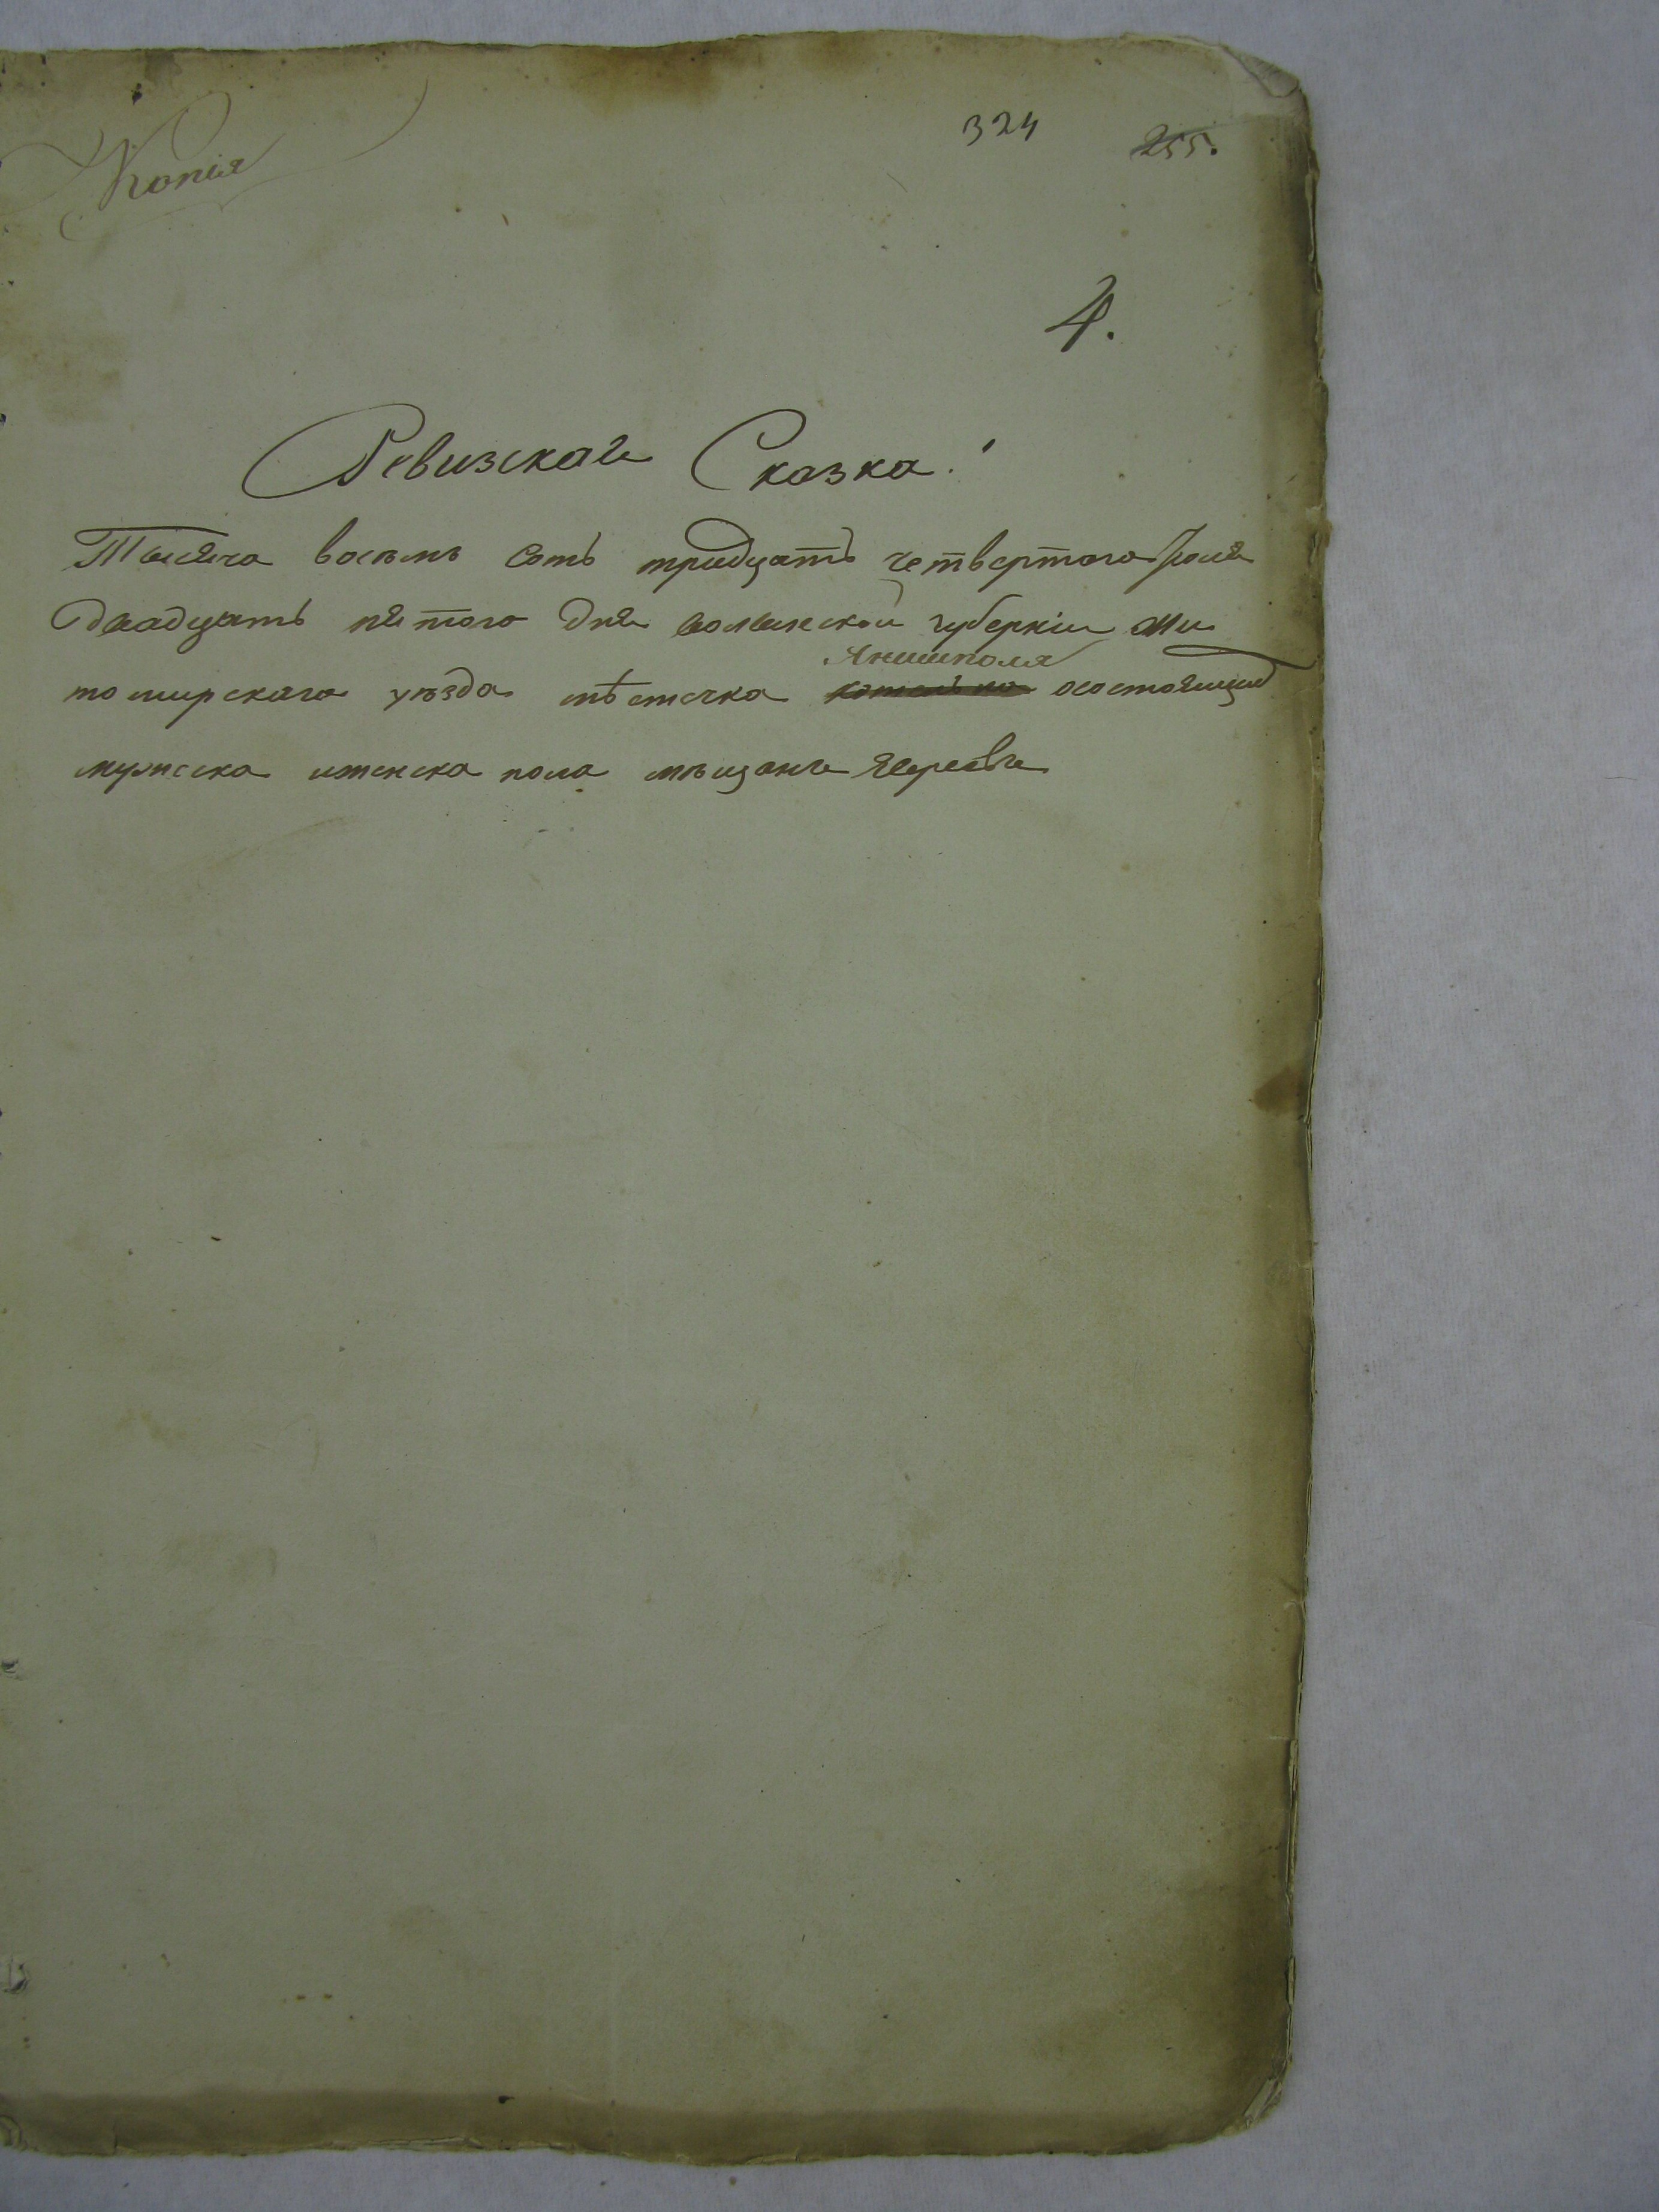 Копія
324 255.
4.
Ревизская Сказка.
Тысяча восемь сотъ тридцать четвертого Іюля
двадцать пятого дня волынской губерніи Жи
Янушполя
томирскаго уѣзда мѣстечка осостоящих
мужеска иженска пола мѣщанъ Евреевъ